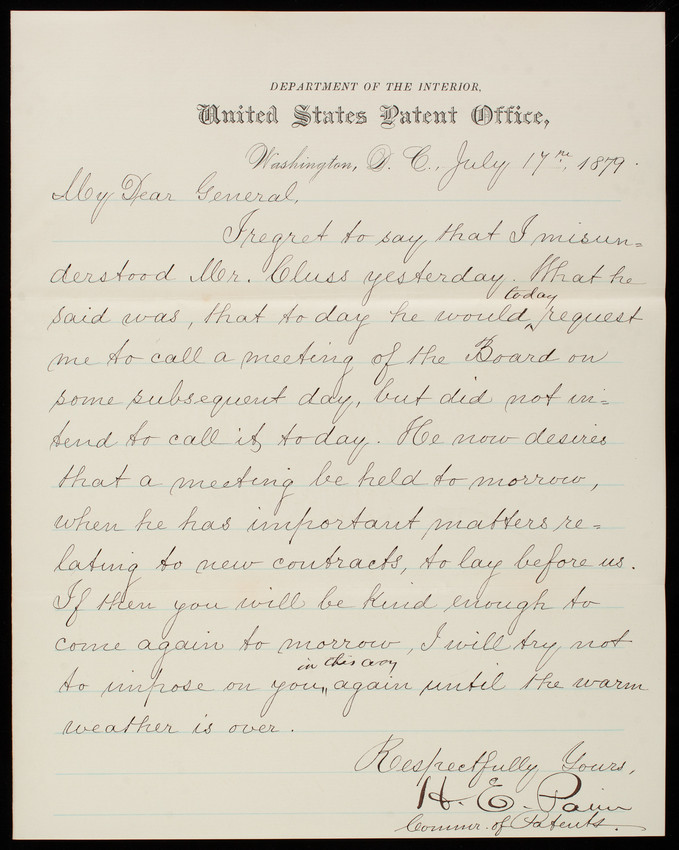 DEPARTMENT OF THE INTERIOR,
United States Patent Office,
Washington, D. C., July 17th, 1879.
My Dear General,
I regret to say that I misun=
derstood Mr. Cluss yesterday. What he
today
said was, that to day he would request
me to call a meeting of the Board on
some subsequent day, but did not in=
tend to call it, to day. He now desires
that a meeting be held to morrow,
when he has important matters re=
lating to new contracts, to lay before us.
If then you will be kind enough to
come again to morrow, I will try not
in this way
to impose on you, again until the warm
weather is over.
Respectfully Yours,
H. E. Paine
Commr. of Patents.